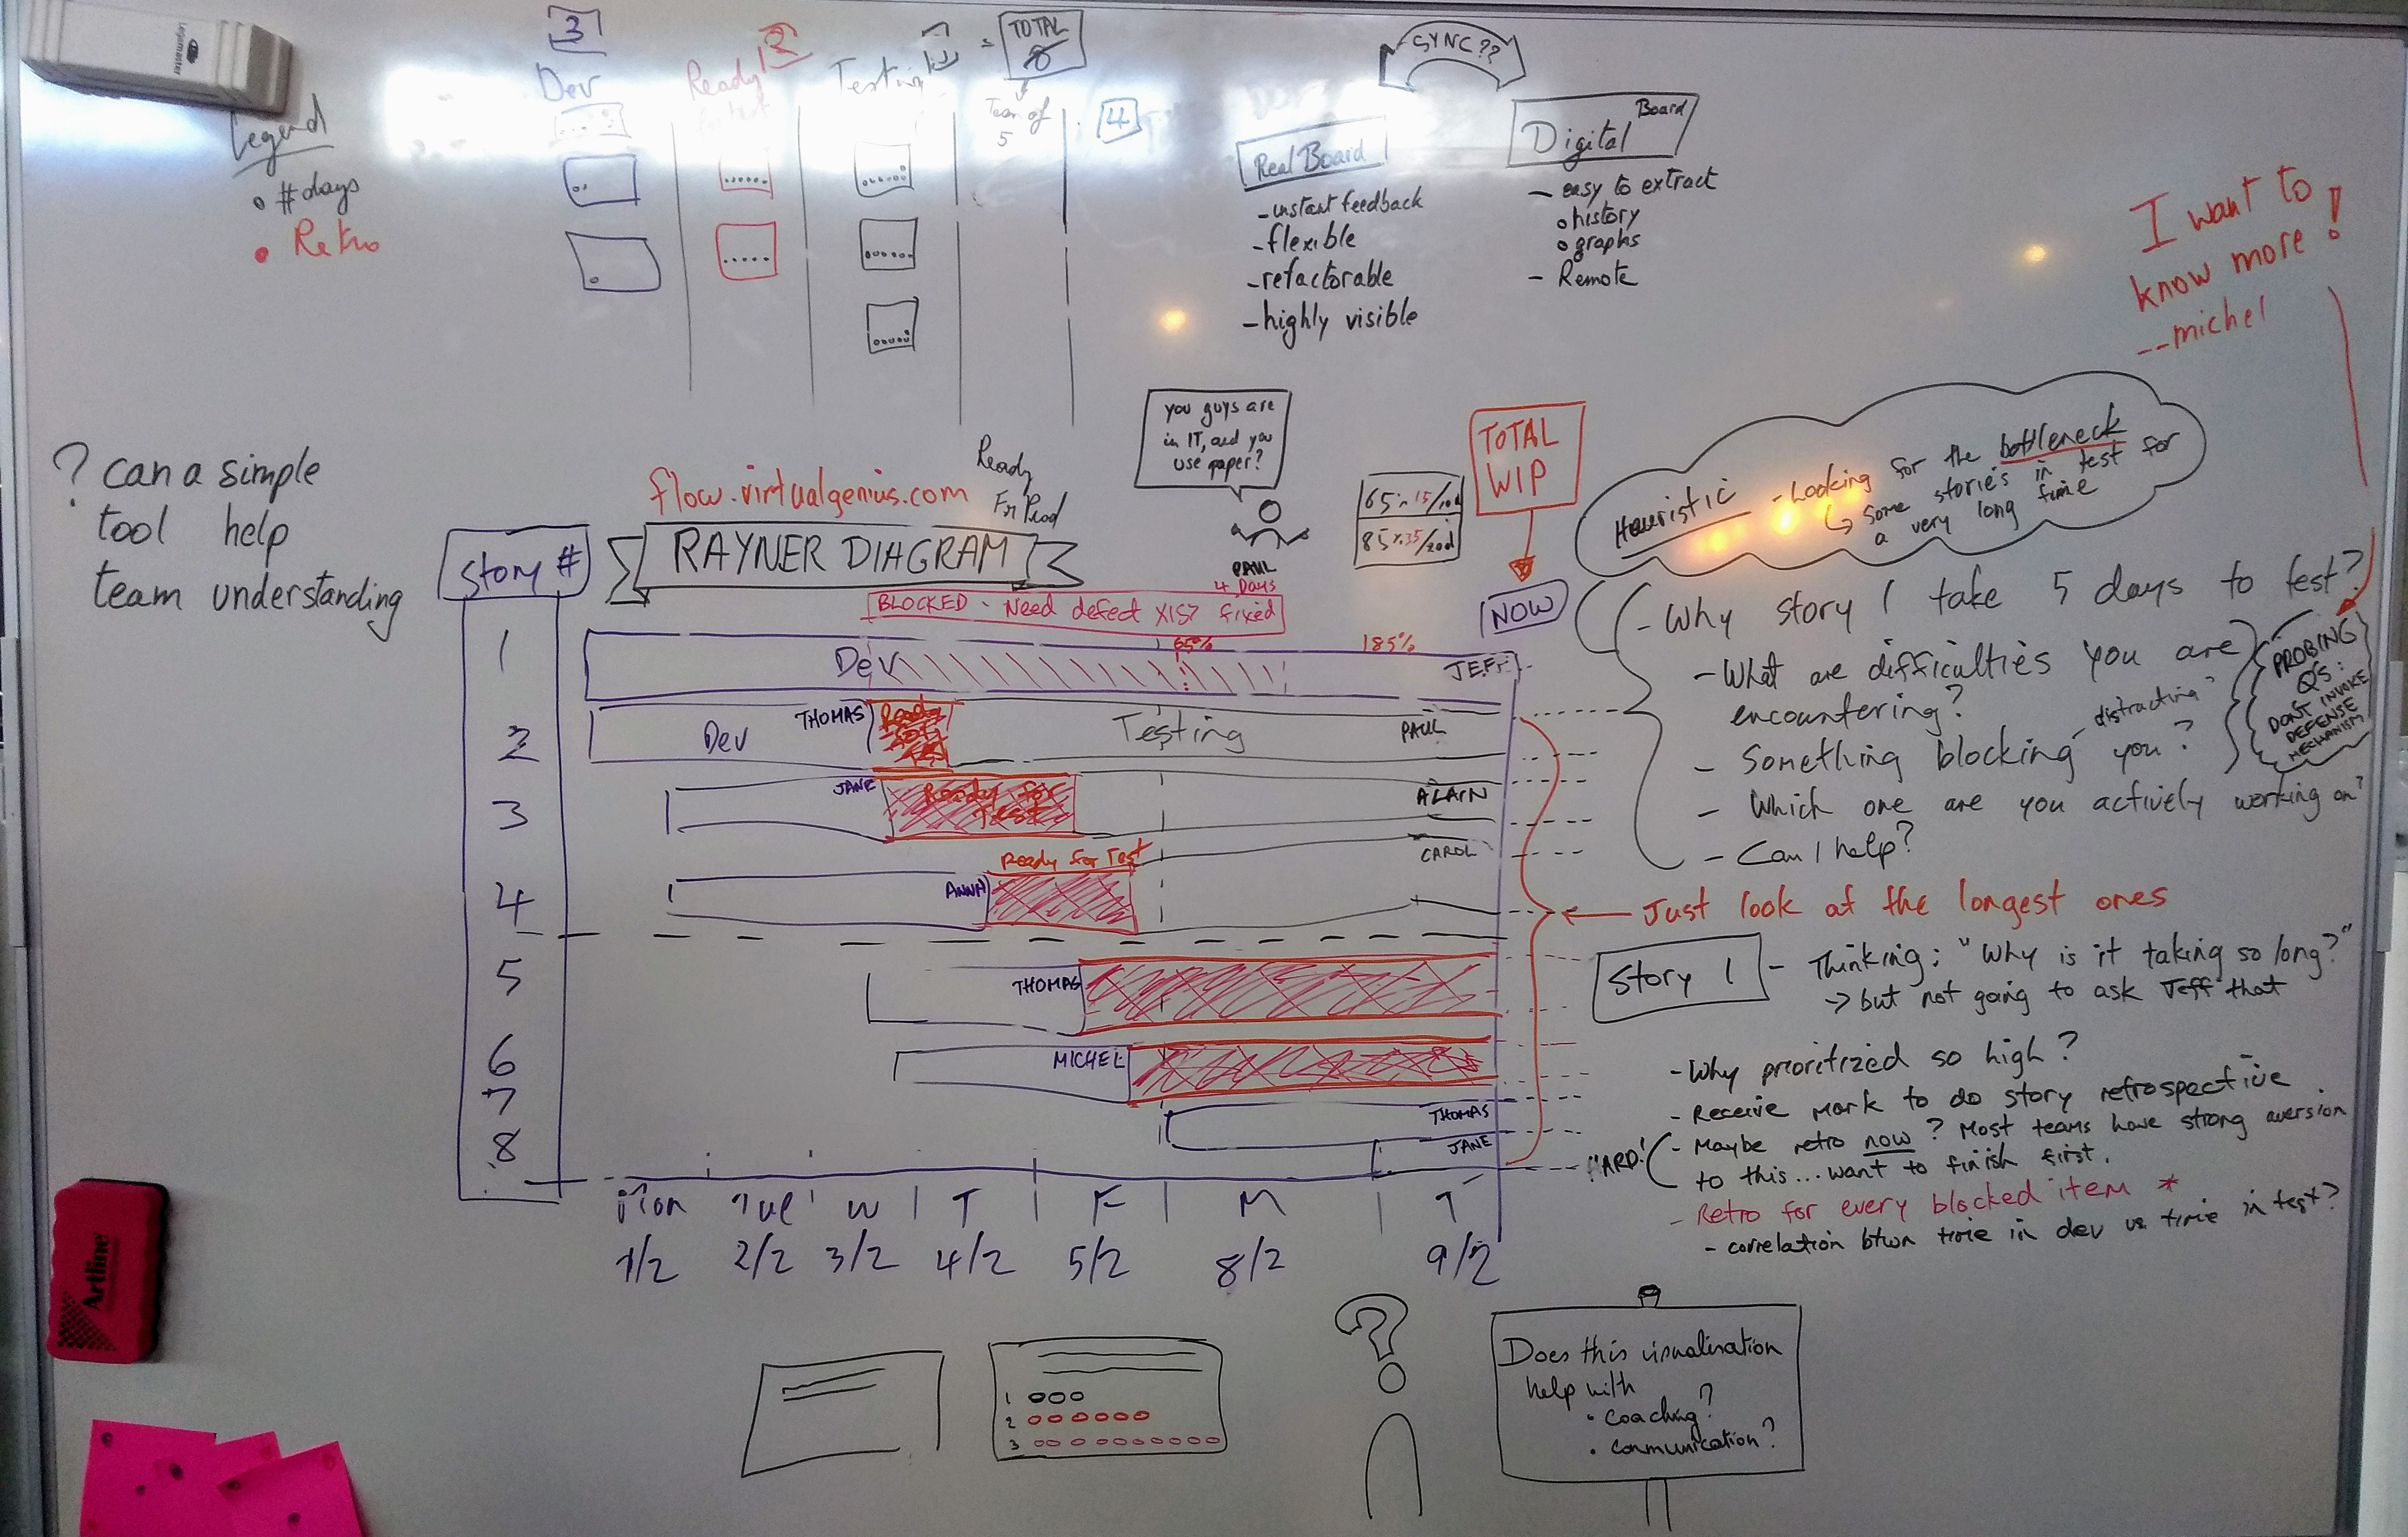 legamaster
3
Dev
Ready
2
Testing
=
TOTAL
8
Team of
5
4
SYNC??
Legend
• #days
• Retro
Real Board
- instant feedback
- flexible
- refactorable
- highly visible
Digital Board
- easy to extract
• history
• graphs
- Remote
I want to
know more!
-- michel
? can a simple
tool help
team understanding
you guys are
in IT, and you
use paper?
PAUL
TOTAL
WIP
NOW
Heuristic - Looking for the bottleneck
↳ some stories in test for
a very long time
flow.virtualgenius.com
Ready
Fr Prod
RAYNER DIAGRAM
Story #
BLOCKED - Need defect X157 fixed
4 Days
65%
85%
1
Dev
JEFF
2
Dev
THOMAS
Ready
Testing
PAUL
3
JANE
Ready for
Test
ALAIN
4
ANNA
Ready for Test
CAROL
5
THOMAS
6
MICHEL
7
THOMAS
8
JANE
Mon
Tue
W
T
F
M
T
1/2
2/2
3/2
4/2
5/2
8/2
9/2
- Why story 1 take 5 days to test?
- What are difficulties you are
encountering?
distracting?
- Something blocking you?
- Which one are you actively working on?
- Can I help?
PROBING
QS:
DONT INVOKE
DEFENSE
MECHANISM
← Just look at the longest ones
Story 1 - Thinking: "Why is it taking so long?"
→ but not going to ask Jeff that
- Why prioritized so high?
- Receive mark to do story retrospective
- Maybe retro now? Most teams have strong aversion
to this... want to finish first.
"ARD!
- Retro for every blocked item *
- correlation btwn time in dev vs. time in test?
Artline
1
2
3
?
Does this visualisation
help with
• coaching?
• communication?